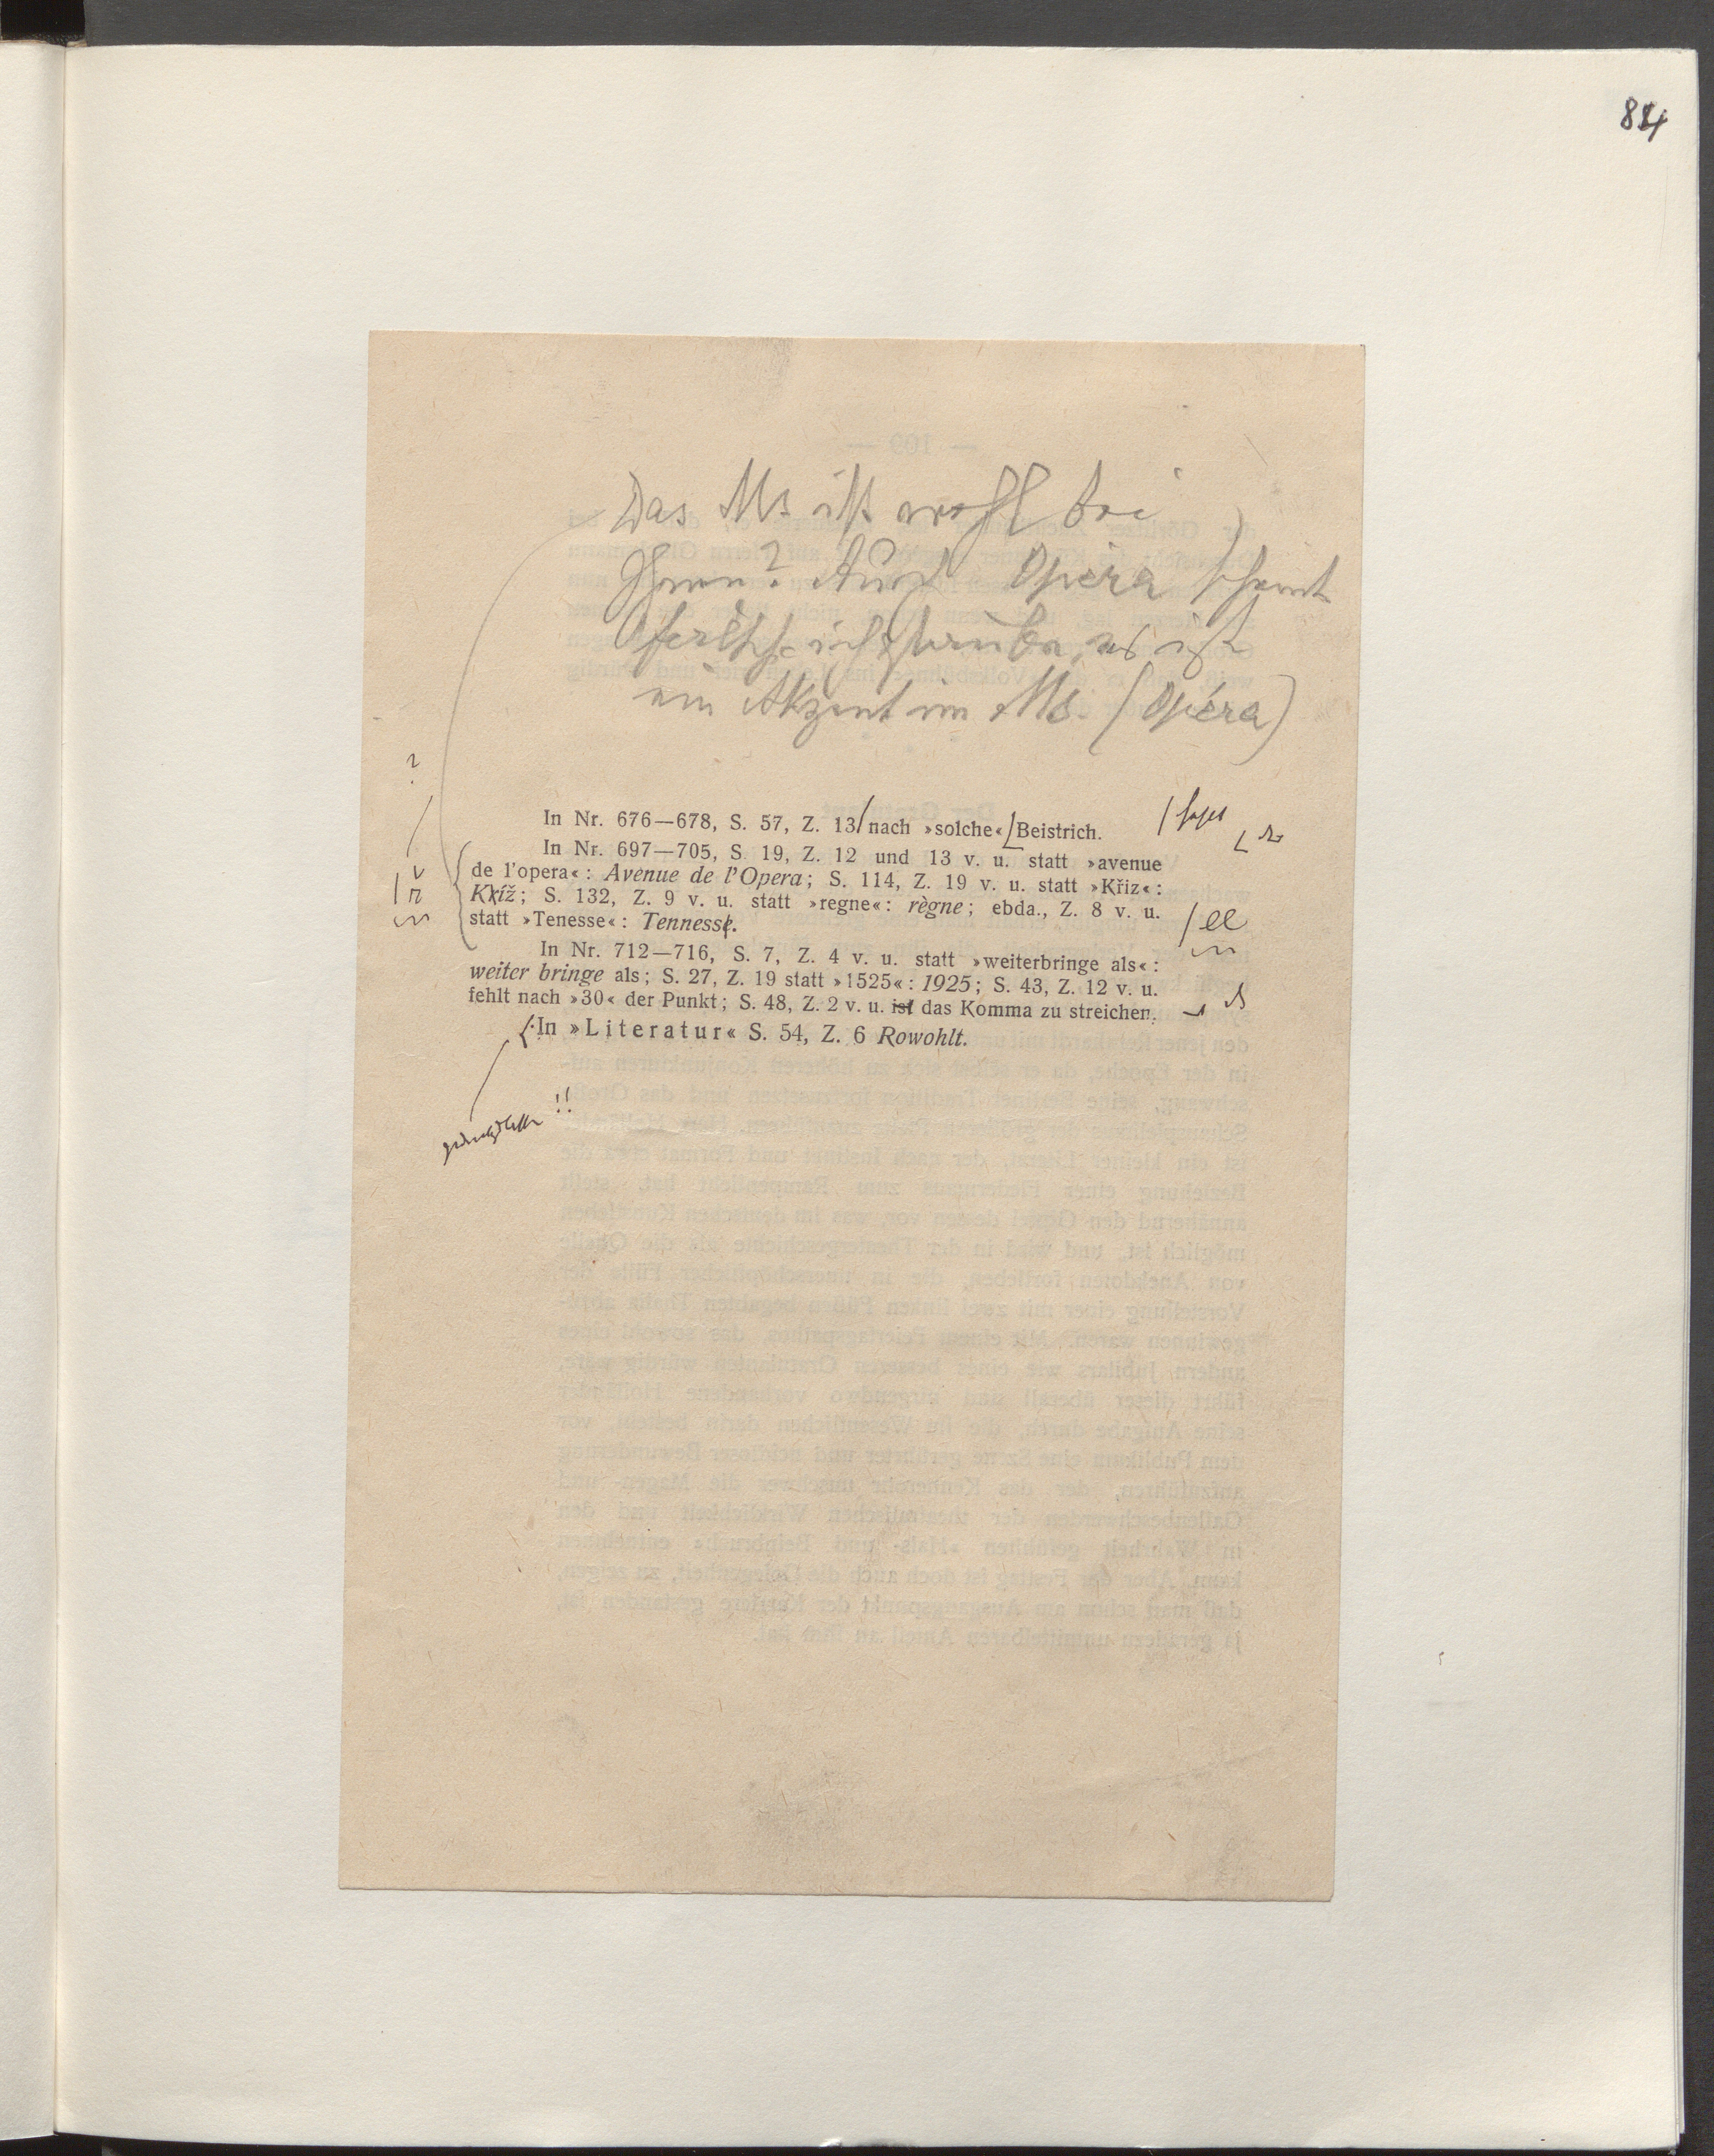 84
Das Ms ist wohl bei
Ihnen? Auch Opera scheint
falsch, ich glaube, es ist
ein Akzent im Ms. (Opéra)
?
In Nr. 676—678, S. 57, Z. 13 nach »solche« Beistrich.
In Nr. 697—705, S. 19, Z. 12 und 13 v. u. statt »avenue
de l'opera«: Avenue de l'Opera; S. 114, Z. 19 v. u. statt »Křiz«:
Kříž; S. 132, Z. 9 v. u. statt »regne«: règne; ebda., Z. 8 v. u.
statt »Tenesse«: Tennesse.
ee
In Nr. 712—716, S. 7, Z. 4 v. u. statt »weiterbringe als«:
weiter bringe als; S. 27, Z. 19 statt »1525«: 1925; S. 43, Z. 12 v. u.
fehlt nach »30« der Punkt; S. 48, Z. 2 v. u. ist das Komma zu streichen.
In »Literatur« S. 54, Z. 6 Rowohlt.
!!